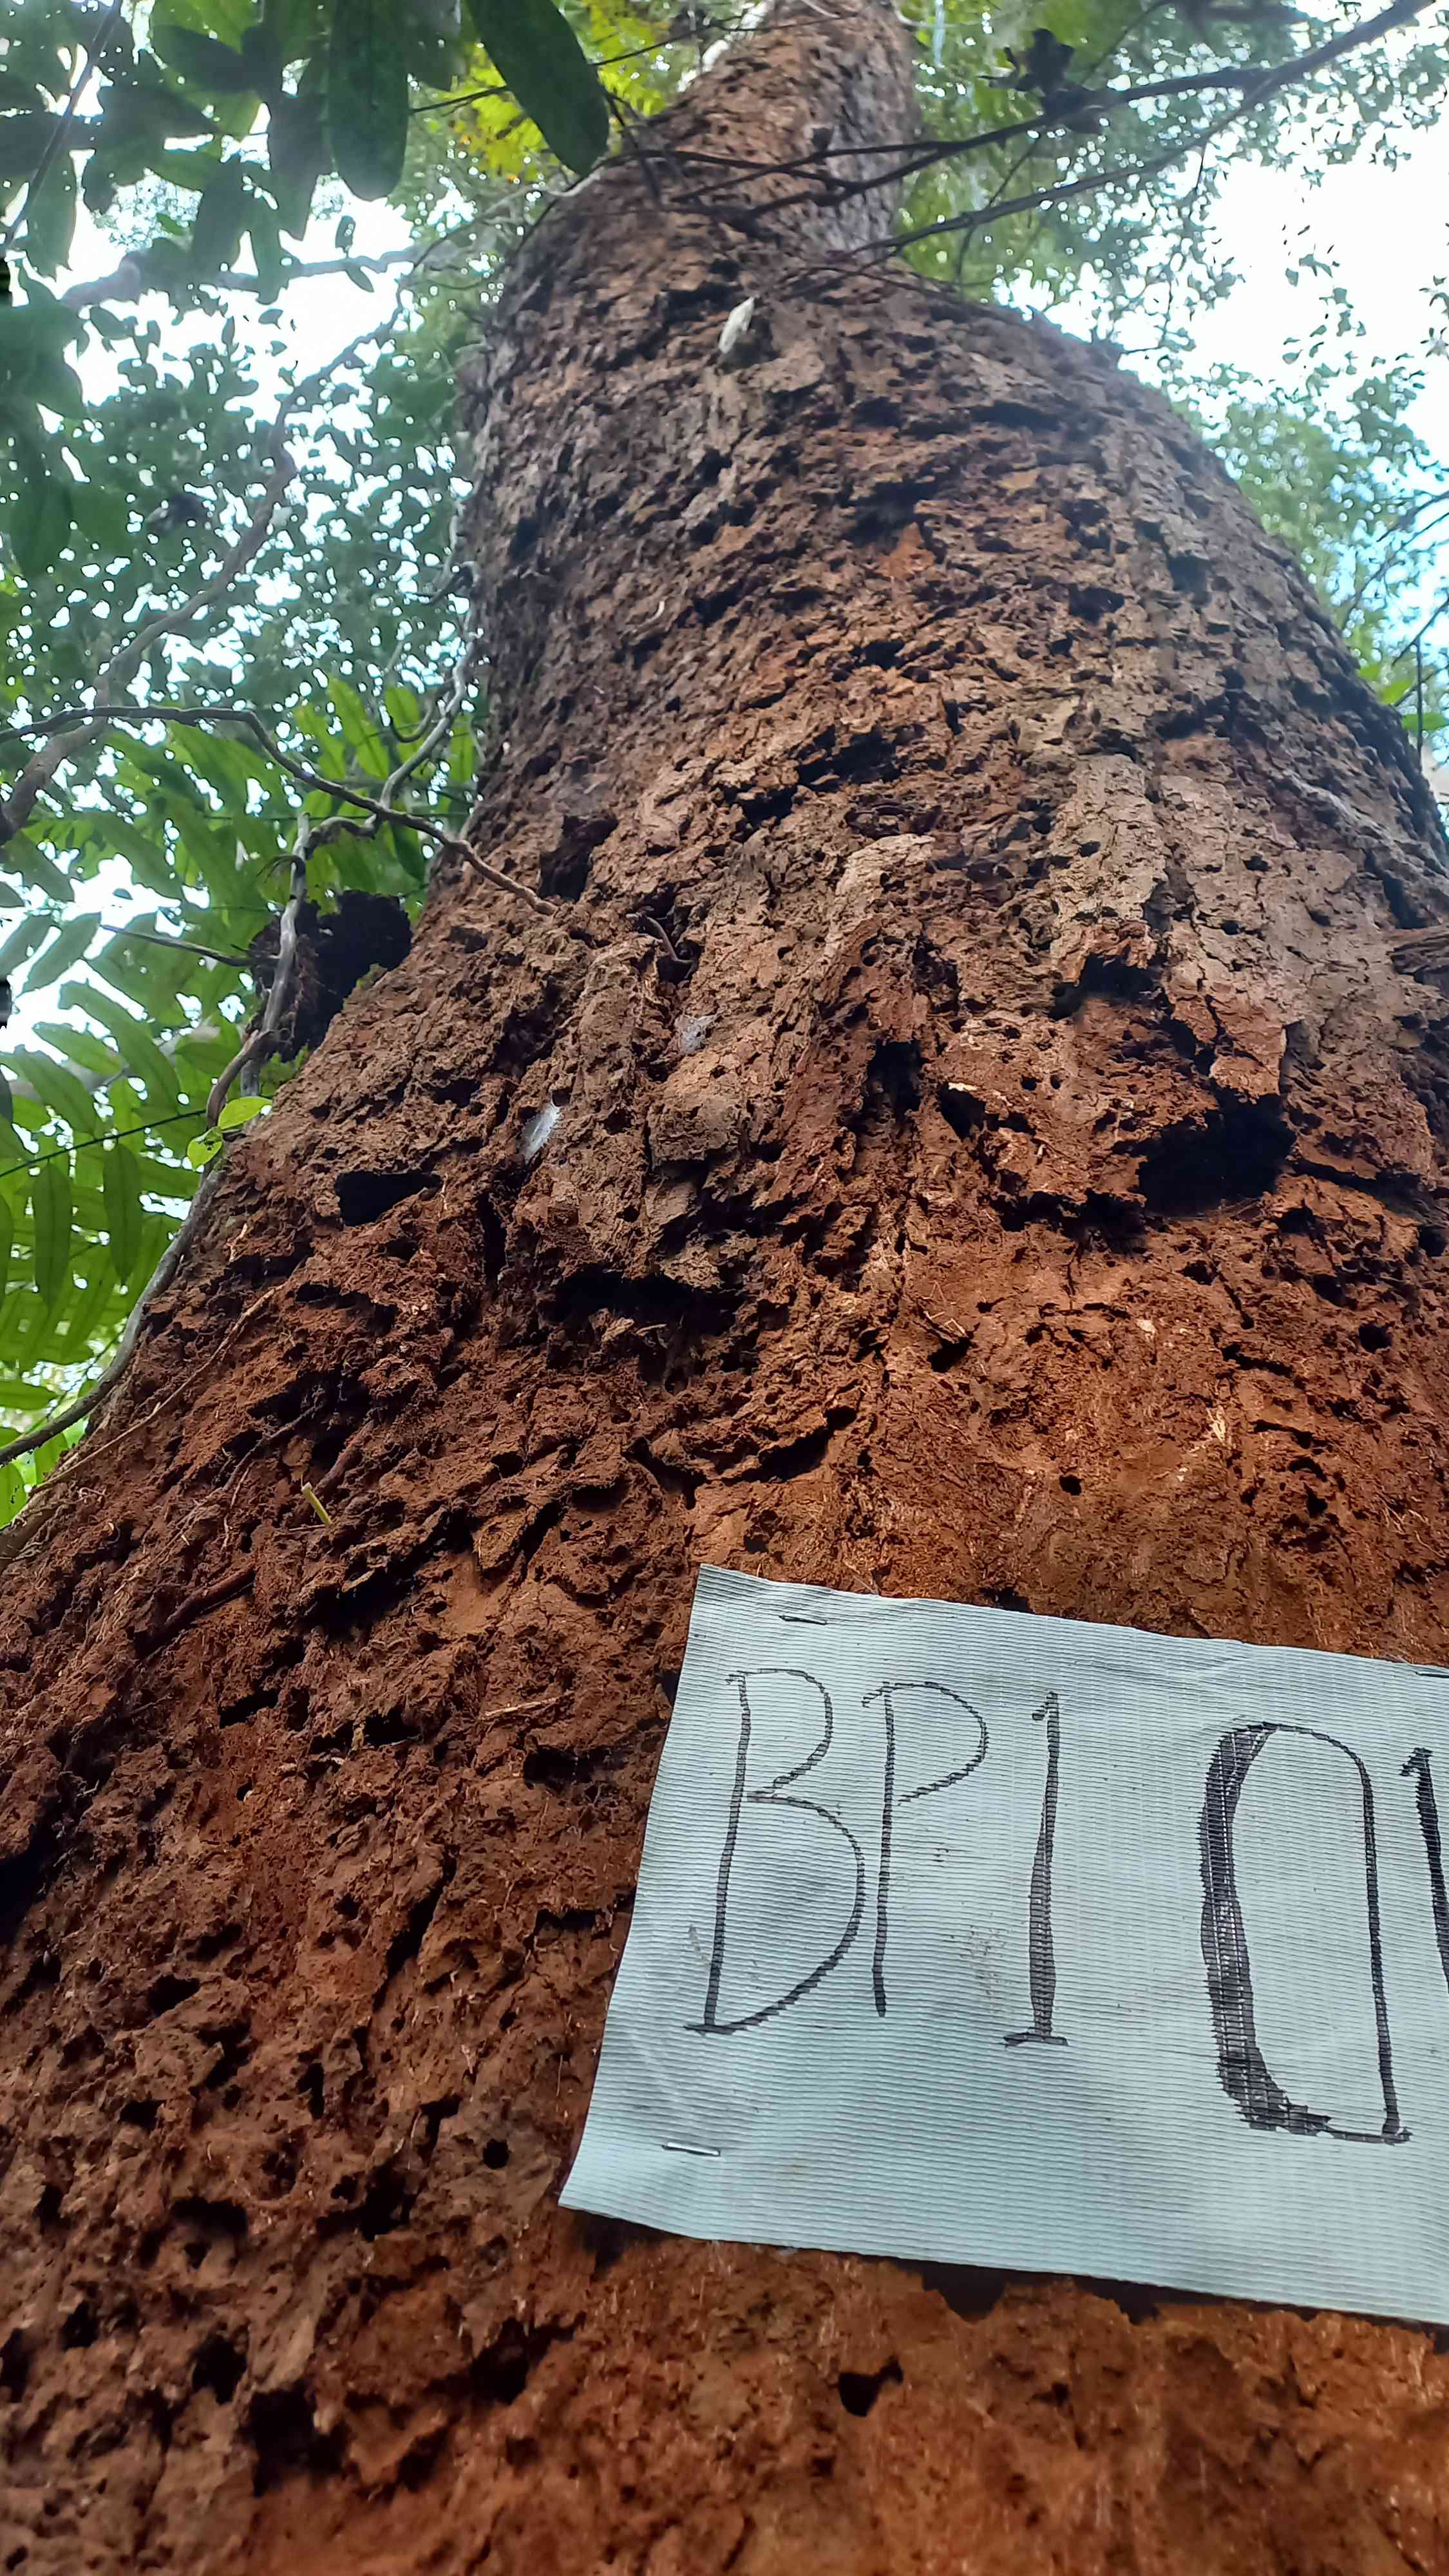 BP1 01